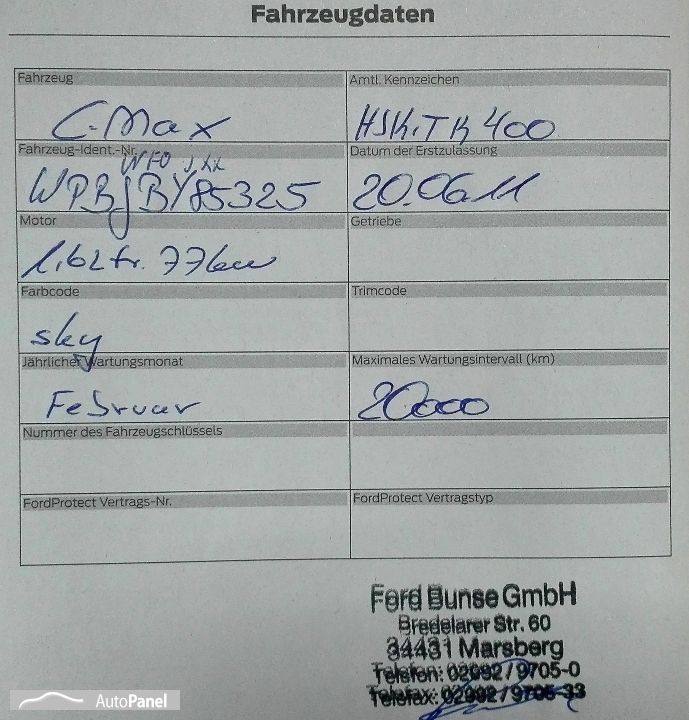 Fahrzeugdaten
Fahrzeug
Amtl. Kennzeichen
C-Max
HSK-TK 400
Fahrzeug-Ident.-Nr.
Datum der Erstzulassung
WF0JXX
WPBJBY85325
20.06.11
Motor
Getriebe
1,6 Ltr. 77kw
Farbcode
Trimcode
sky
Jährlicher Wartungsmonat
Maximales Wartungsintervall (km)
Februar
20000
Nummer des Fahrzeugschlüssels
FordProtect Vertrags-Nr.
FordProtect Vertragstyp
Ford Bunse GmbH
Bredelarer Str. 60
34431 Marsberg
Telefon: 02992 / 9705-0
Telefax: 02992 / 9705-33
AutoPanel